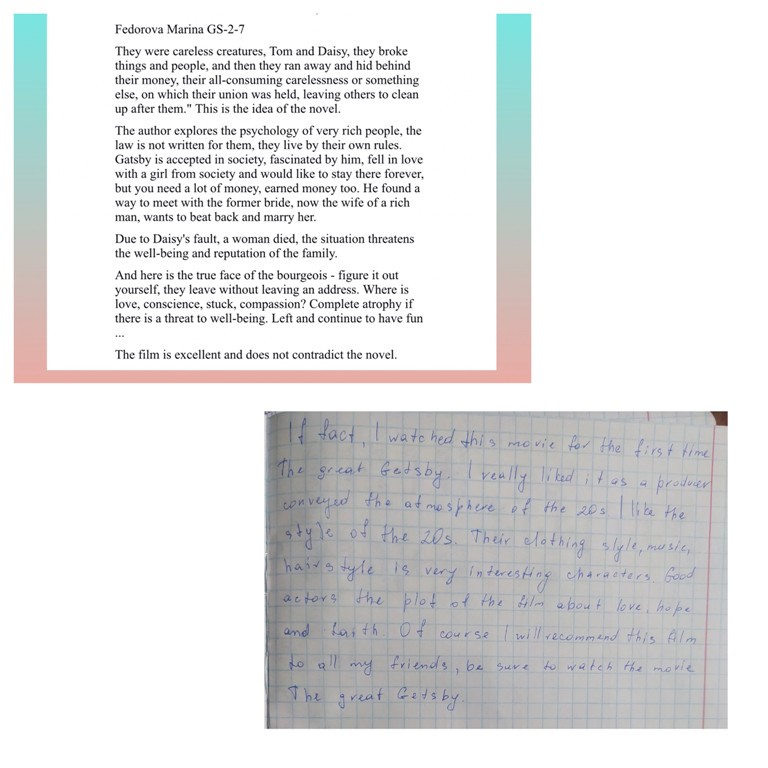 Fedorova Marina GS-2-7
They were careless creatures, Tom and Daisy, they broke
things and people, and then they ran away and hid behind
their money, their all-consuming carelessness or something
else, on which their union was held, leaving others to clean
up after them." This is the idea of the novel.
The author explores the psychology of very rich people, the
law is not written for them, they live by their own rules.
Gatsby is accepted in society, fascinated by him, fell in love
with a girl from society and would like to stay there forever,
but you need a lot of money, earned money too. He found a
way to meet with the former bride, now the wife of a rich
man, wants to beat back and marry her.
Due to Daisy's fault, a woman died, the situation threatens
the well-being and reputation of the family.
And here is the true face of the bourgeois - figure it out
yourself, they leave without leaving an address. Where is
love, conscience, stuck, compassion? Complete atrophy if
there is a threat to well-being. Left and continue to have fun
...
The film is excellent and does not contradict the novel.
If fact, I watched this movie for the first time
The great Getsby. I really liked it as a producer
conveyed the atmosphere of the 20s I like the
style of the 20s. Their clothing slyle, music,
hairstyle is very interesting characters. Good
actors the plot of the film about love, hope
and faith. Of course I will recommend this film
to all my friends, be sure to watch the movie
The great Getsby.